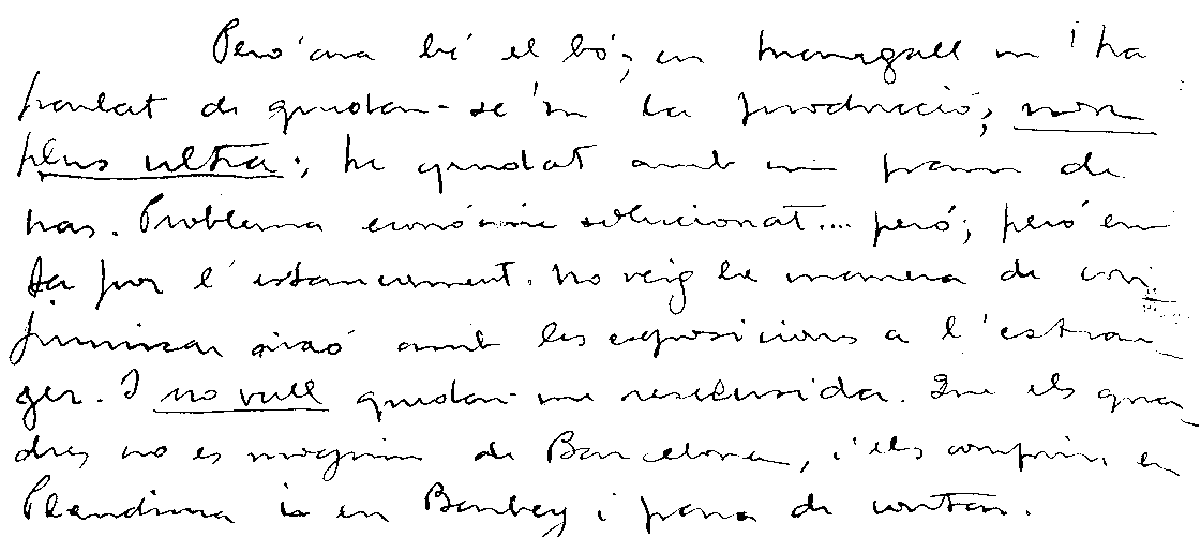 Però ara bé el bó; en Maragall m'ha
parlat de quedar-se'm la producció; non
plus ultra; he quedat amb un pam de
nas. Problema econòmic solucionat.... però; però em
fa por l'estancament. No veig la manera de con
juminar aixó amb les exposicions a l'estran-
ger. I no vull quedar-me resclusida. Que els qua-
dres no es moguin de Barcelona, i els comprin en
Plandiura i en Barbey i para de contar.